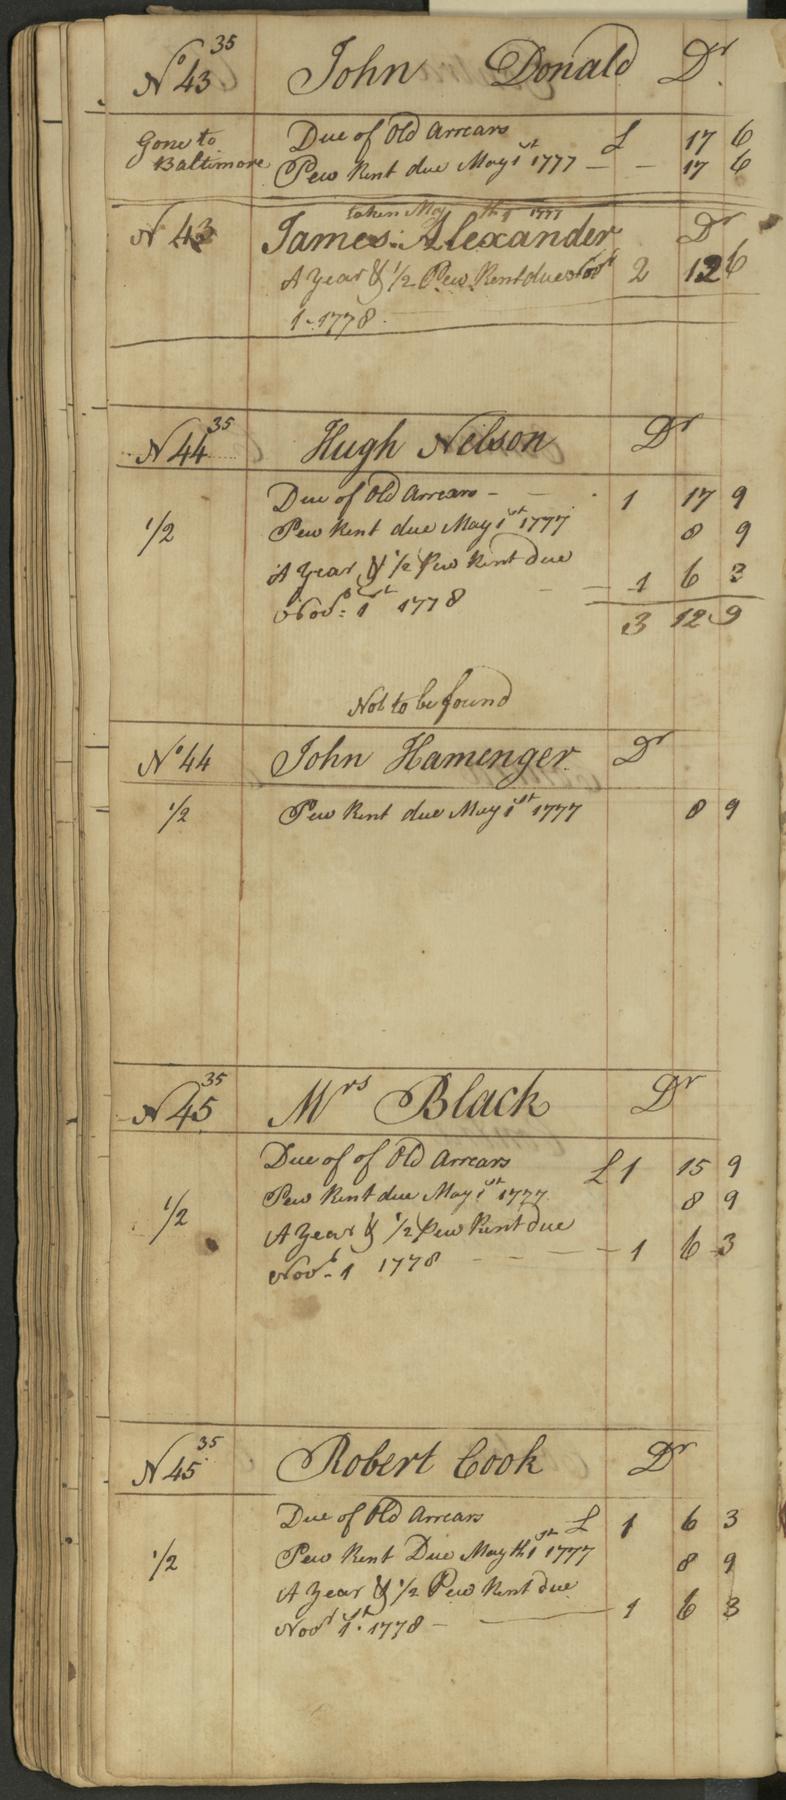 No 43 35 John Donald Dr
Gone to Baltimore
Due of Old Arrears £ 17 6
Pew Rent due May 1st 1777 — — 17 6
taken May th 1 1777
N 43 James Alexander Dr
A Year & 1/2 Pew Rent due Novr 2 12 6
1 - 1778
N 44 35 Hugh Nelson Dr
Due of Old Arrears - - 1 17 9
1/2 Pew Rent due May 1st 1777 8 9
A Year & 1/2 Pew Rent due
Novb: 1st 1778 — — 1 6 3
3 12 9
Not to be found
No 44 John Hamenger Dr
1/2 Pew Rent due May 1st 1777 8 9
N 45 35 Mrs Black Dr
Due of of Old Arrears £ 1 15 9
1/2 Pew Rent due May 1st 1777 8 9
A Year & 1/2 Pew Rent due
Novb - 1 1778 - - — — 1 6 3
N 45 35 Robert Cook Dr
Due of Old Arrears £ 1 6 3
1/2 Pew Rent Due May th 1st 1777 8 9
A Year & 1/2 Pew Rent due
Novr 1st 1778 - — 1 6 3